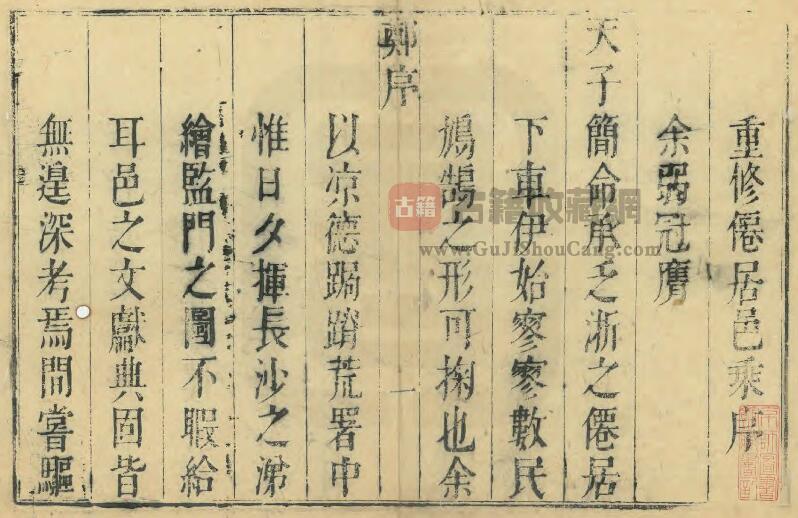 重修僊居邑乘序
余弱冠膺
天子簡命承乏浙之僊居
下車伊始寥寥數民
鳩鵠之形可掬也余
鄭序
一
以凉德跼蹐荒署中
惟日夕揮長沙之涕
繪監門之圖不暇給
耳邑之文獻典固皆
無遑深考焉間嘗驅
古籍
古籍收藏網
www.GuJiShouCang.com